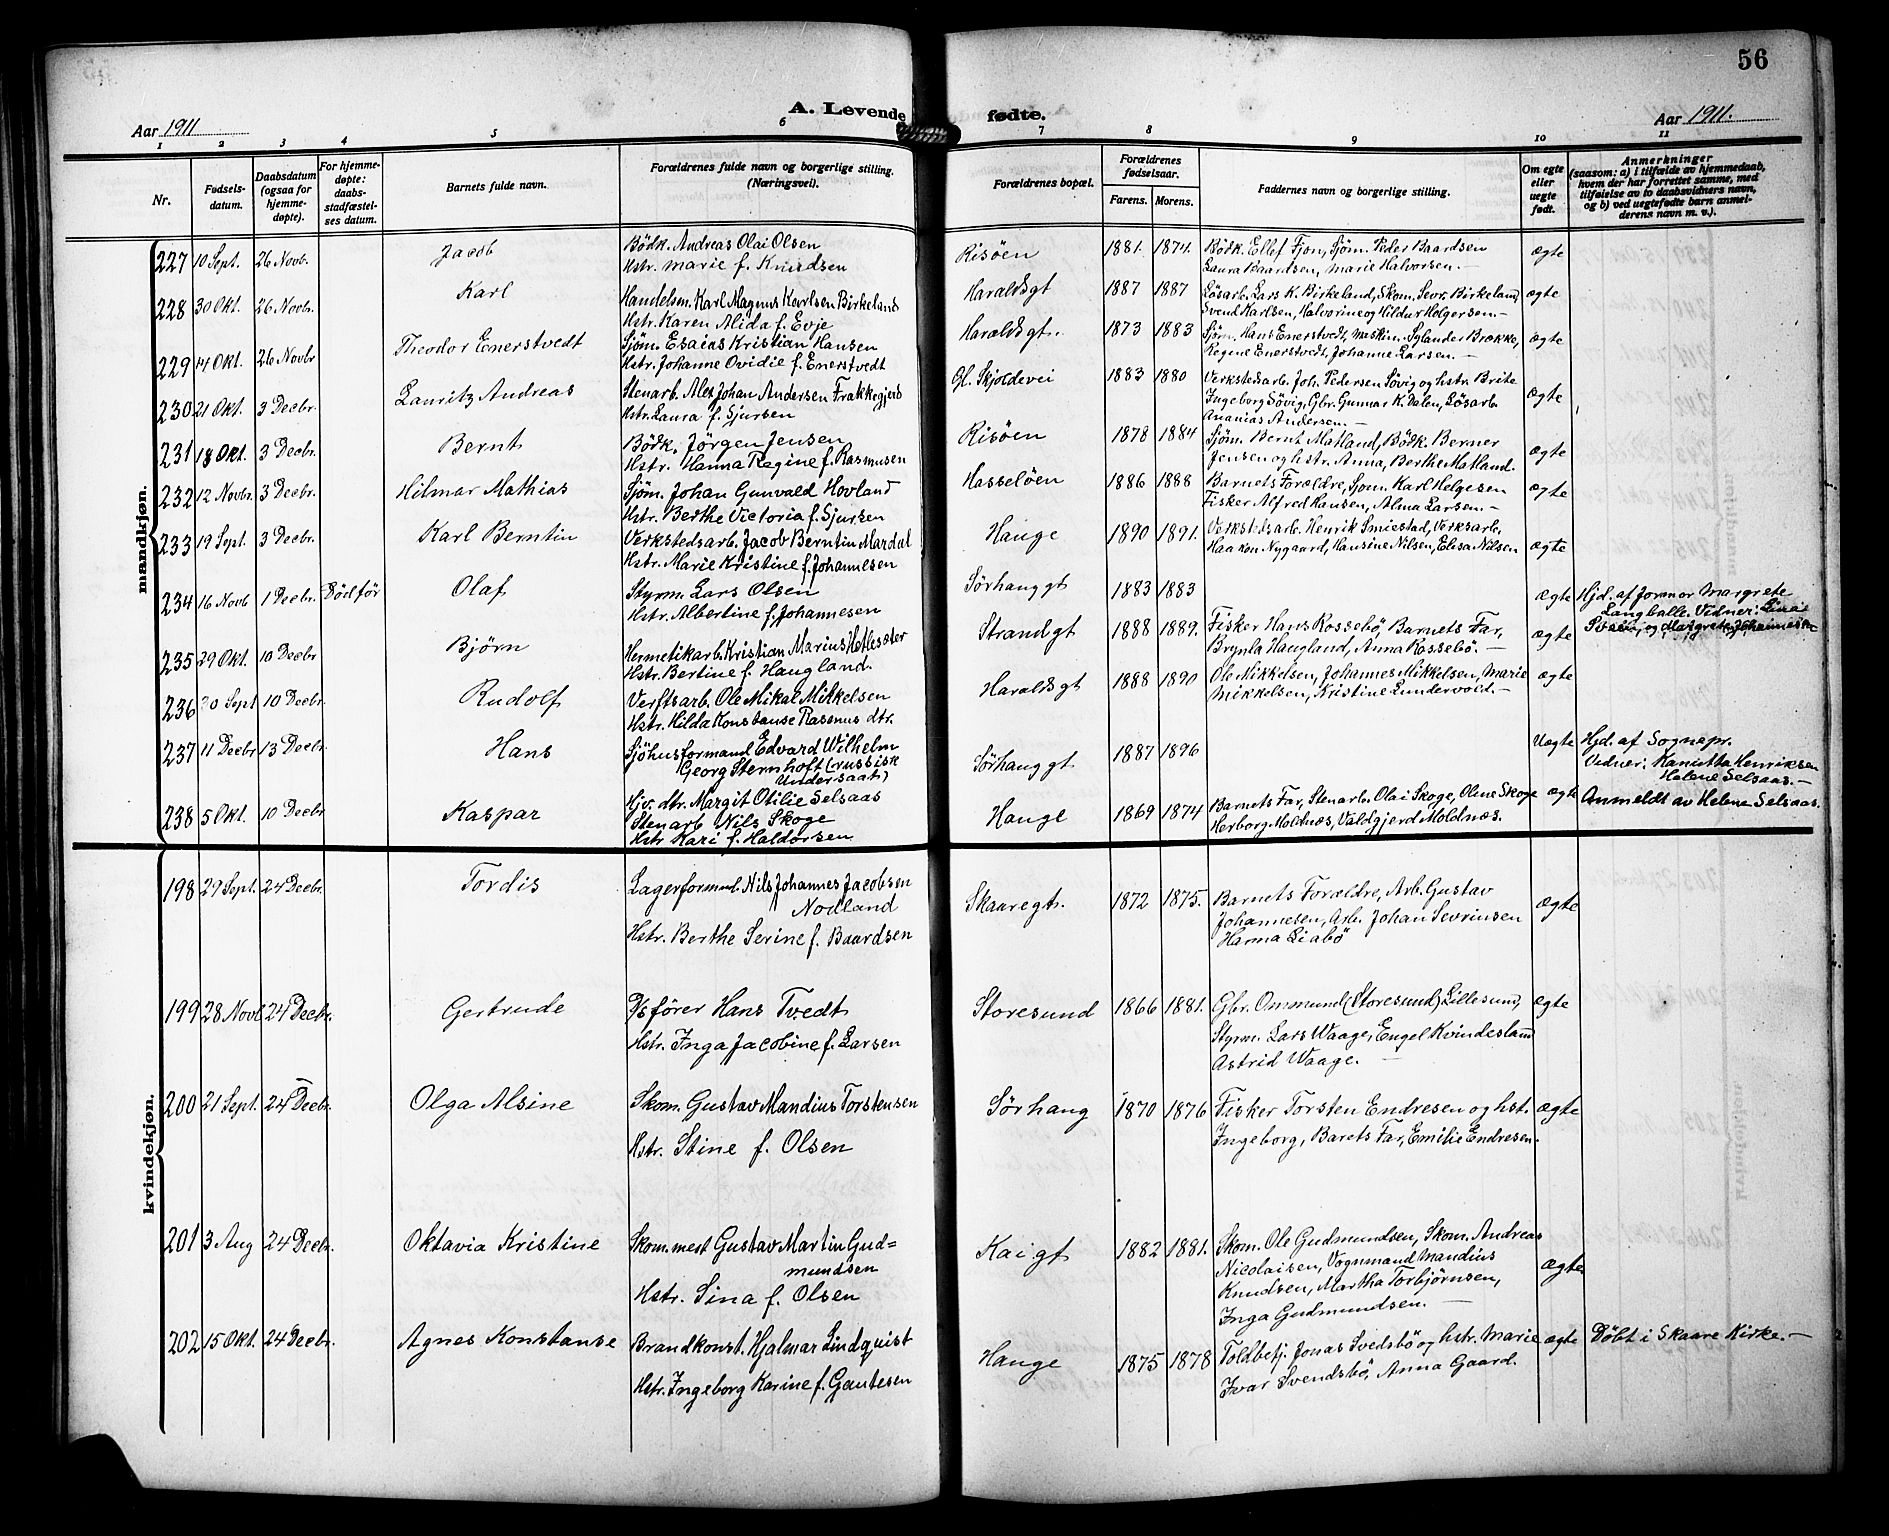 56
A. Levende fødte.
Aar 1911
Aar 1911.
1 2 3 4 5 6 7 8 9 10 11
Nr.
Fødsels-
datum.
Daabsdatum
(ogsaa for
hjemme-
døpte).
For hjemme-
døpte:
daabs-
stadfæstel-
ses datum.
Barnets fulde navn.
Forældrenes fulde navn og borgerlige stilling.
(Næringsvei).
Forældrenes bopæl.
Forældrenes
fødselsaar.
Farens. Morens.
Faddernes navn og borgerlige stilling.
Om egte
eller
uegte
født.
Anmerkninger
(saasom: a) i tilfælde av hjemmedaab,
hvem der har forrettet samme, med
tilføielse av to daabsvidners navn,
og b) ved uegtefødte barn anmel-
derens navn m. v.).
mandkjøn.
227 10 Sept. 26 Novb. Jacob
Bödk. Andreas Olai Olsen
Hstr. Marie f. Knudsen
Risöen 1881. 1874.
Bödk. Ellef Fjon, Sjöm. Peder Baardsen
Laura Baardsen, Marie Halvorsen.—
ægte
228 30 Okt. 26 Novbr. Karl
Handelsm. Karl Magnus Karlsen Birkeland
Hstr. Karen Alida f. Evje
Haraldsgt 1887 1887
Lösarb. Lars K. Birkeland, Skom. Sevr. Birkeland
Svend Karlsen, Halvorine og Hildur Holgersen.—
ægte
229 14 Okt. 26 Novbr Theodor Enerstvedt
Sjöm. Esaias Kristian Hansen
Hstr. Johanne Ovidie f. Enerstvedt
Haraldsgt. 1873 1883
Sjöm. Hans Enerstvedt, Maskin. Sylander Brække,
Regine Enerstvedt, Johanne Larsen.—
ægte
230 21 Okt. 3 Decbr. Lauritz Andreas
Stenarb. Alex Johan Andersen Frakkegjerd
Hstr. Laura f. Sjursen
Gl. Skjoldevei 1883 1880
Verkstedsarb. Joh. Pedersen Sövig og hstr. Brite
Ingeborg Sövig, Gbr. Gunnar K. Dalen, Lösarb.
Ananias Andersen.—
ægte
231 18 Okt. 3 Decbr. Bernt
Bödk. Jörgen Jensen
Hstr. Hanna Regine f. Rasmusen
Risöen 1878 1884
Sjöm. Bernt Matland, Bödk. Berner
Jensen og hstr. Anna, Berthe Matland.
ægte
232 12 Novbr. 3 Decbr. Hilmar Mathias
Sjöm. Johan Gunvald Hovland
Hstr. Berthe Victoria f. Sjursen
Hasselöen 1886 1888
Barnets Forældre, Sjöm. Karl Helgesen
Fisker Alfred Hansen, Alma Larsen.—
ægte
233 19 Sept. 3 Decbr. Karl Berntin
Verkstedsarb. Jacob Berntin Mardal
Hstr. Marie Kristine f. Johannesen
Hauge 1890 1891.
Verkstedsarb. Henrik Smiestad, Verksarb.
Haakon Nygaard, Hansine Nilsen, Elisa Nilsen
ægte
234 16 Novb 1 Decbr. Död för Olaf
Styrm. Lars Olsen
Hstr. Albertine f. Johannesen
Sörhauggt 1883 1883
ægte
Hjd. af Jormor Margrete
Langballe. Vidner: Lina
og Margrete Johannessen
235 29 Okt. 10 Decbr Björn
Hermetikarb. Kristian Marius Hetlesæter
Hstr. Bertine f. Haugland.
Strandgt 1888 1889.
Fisker Hans Rossebö, Barnets Far,
Brynla Haugland, Anna Rossebö.—
ægte
236 30 Sept 10 Decbr. Rudolf
Verftsarb. Ole Mikal Mikkelsen
Hstr. Hilda Konstanse Rasmus dtr.
Haraldsgt 1888 1890
Ole Mikkelsen, Johannes Mikkelsen, Marie
Mikkelsen, Kristine Lundervold.—
ægte
237 11 Decbr 13 Decbr. Hans
Sjöhusformand Edvard Wilhelm
Georg Sternhoft (russisk
Undersaat)
Hjv. dtr. Margit Otilie Selsaas
Sörhauggt 1887 1896
Uægte
Hjd. af Sognepr.
Vidner: Kanutta Henriksen
Helene Selsaas.—
Anmeldt av Helene Selsaas.
238 5 Okt. 10 Decbr Kaspar
Stenarb Nils Skoge
Hstr Kari f. Haldorsen
Hauge 1869 1874
Barnets Far, Stenarb. Olai Skoge, Oline Skoge
Herborg Moldnæs, Valdgjerd Moldnæs.
ægte
kvindekjøn.
198 27 Sept. 24 Decbr. Tordis
Lagerformand Nils Johannes Jacobsen
Nodland
Hstr. Berthe Serine f. Baardsen
Skaaregt. 1872 1875.
Barnets Forældre, Arb. Gustav
Johannesen, Arb. Johan Sevrinsen
Hanna Liabö
ægte
199 28 Novb 24 Decbr. Gertrude
förer Hans Tvedt
Hstr. Inga Jacobine f. Larsen
Storesund 1866 1881.
Gbr. Ommund (Storesund) Lillesund,
Styrm. Lars Waage, Engel Kvindesland
Astrid Waage.—
ægte
200 21 Sept. 24 Decbr. Olga Alsine
Skom. Gustav Mandius Torstensen
Hstr. Stine f. Olsen
Sörhaug 1870 1876
Fisker Torsten Endresen og hst.
Ingeborg, Barets Far, Emilie Endresen.
ægte
201 3 Aug 24 Decbr. Oktavia Kristine
Skom.mest Gustav Martin Gud=
mundsen
Hstr. Sina f. Olsen
Kaigt 1882 1881.
Skom. Ole Gudmundsen, Skom. Andreas
Nicolaisen, Vognmand Mandius
Knudsen, Martha Torbjörnsen,
Inga Gudmundsen.—
ægte
202 15 Okt. 24 Decbr. Agnes Konstanse
Brandkonst. Hjalmar Lindquist
Hstr. Ingeborg Karine f. Gautesen
Hauge 1875 1878
Toldbetj. Jonas Svedsbö og hstr. Marie
Ivar Svendsbö, Anna Gaard.
ægte
Döbt i Skaare Kirke.—